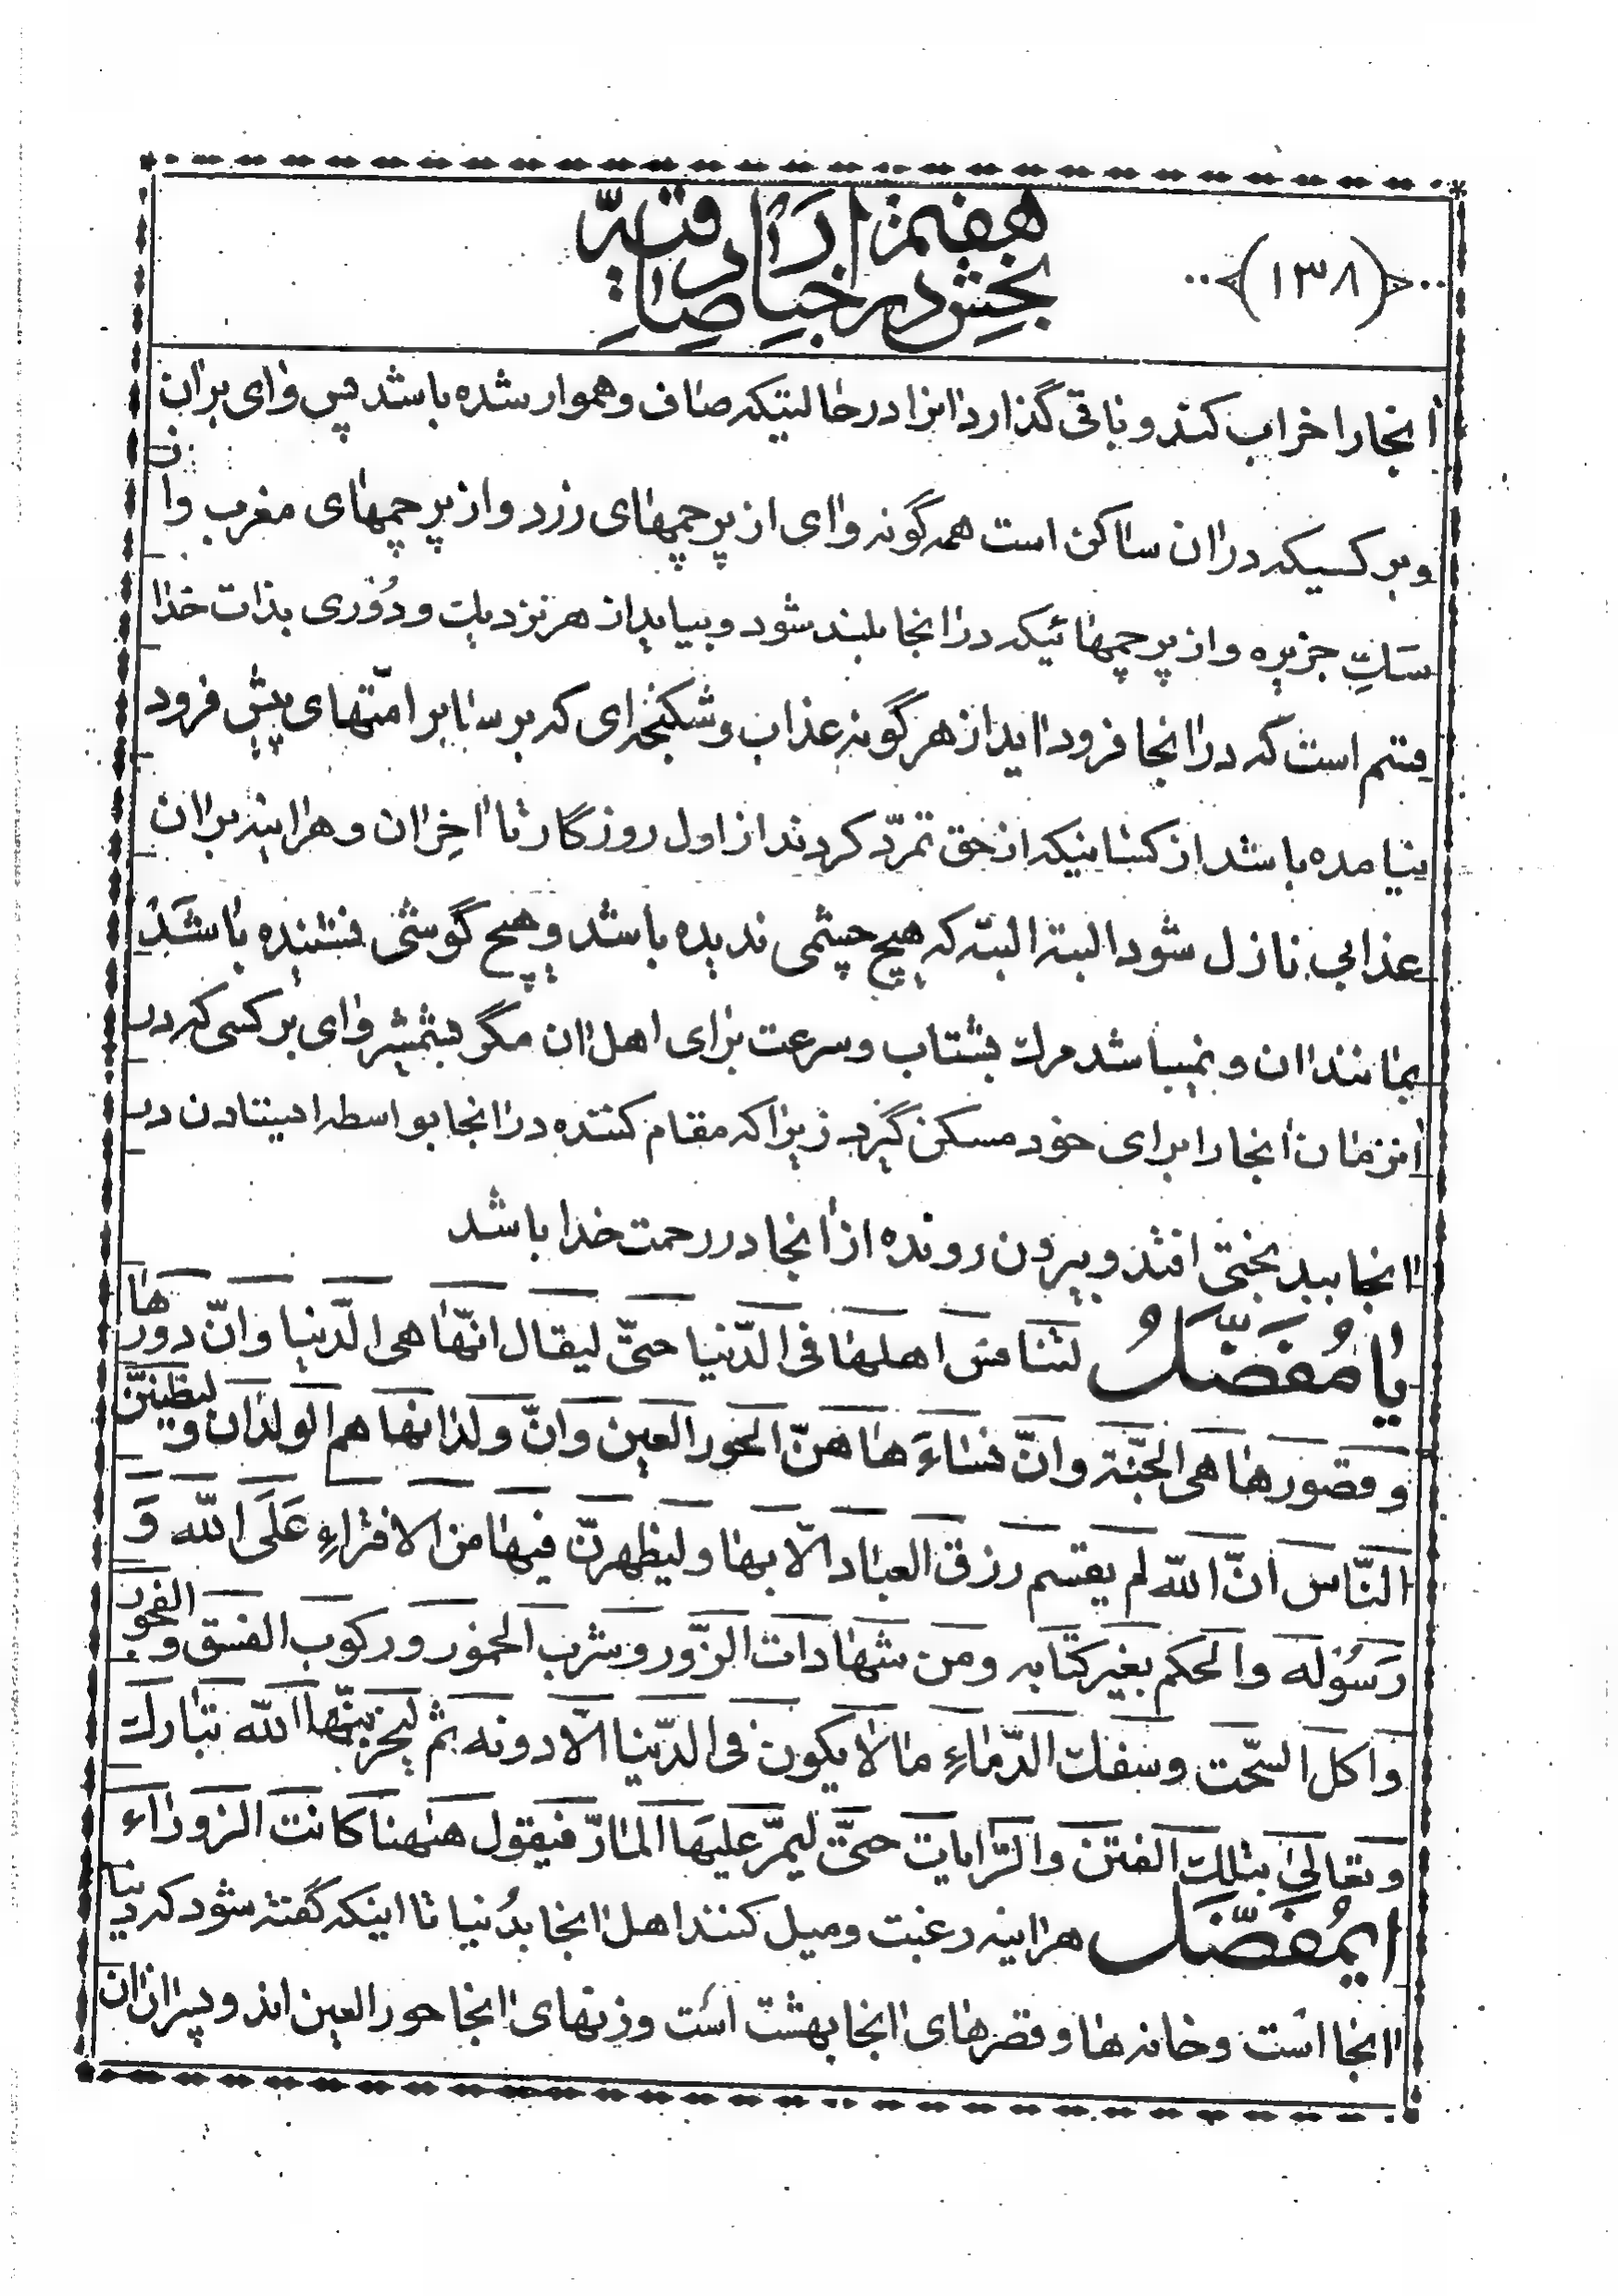 (۱۳۸)
بخش هفتم در اخبار صادقیه
آنجا را خراب کند و باقی گذارد آنرا در حالتیکه صاف و هموار شده باشد پس وای بر آن
و بر کسیکه در آن ساکن است همه گونه وای از پرچمهای زرد و از پرچمهای مغرب و از
جزیره و از پرچمهائیکه در آنجا بلند شود و بیاید از هر نزدیک و دوری بذات خدا
قسم است که در آنجا فرود آید از هر گونه عذاب و شکنجه‌ای که بر سایر امّتهای پیش فرود
نیامده باشد از کسانیکه از حق تمرّد کردند از اول روزگار تا آخِر آن و هراینه بر آن
عذابی نازل شود البته البته که هیچ چشمی ندیده باشد و هیچ گوشی نشنیده باشد
بمانند آن و نمیباشد مرک بشتاب و سرعت برای اهل آن مگر بشمشیر وای بر کسی که در
آنزمان آنجا را برای خود مسکن گیرد زیرا که مقام کننده در آنجا بواسطه ایستادن در
آنجا ببدبختی افتد و بیرون رونده از آنجا در رحمت خدا باشد
یا مُفَضَّلُ لتنافس اهلها فی الدّنیا حتّی لیقال انّها هی الدّنیا وانّ دورها
و قصورها هی الجنّة وانّ نساءَها هنّ الحور العین وانّ ولدانها هم الولدان و لیظننّ
النّاس انّ اللّه لم یقسم رزق العباد الّا بها ولیظهرنّ فیها من الافتراءِ عَلَی اللّه وَ
رَسُوله والحکم بغیر کتابه ومن شهادات الزّور وشرب الخمور ورکوب الفسق و الفجور
واکل السّحت وسفك الدّماءِ ما لا یکون فی الدّنیا الّا دونه ثم لیخربنّها اللّه تبارك
وتعالی بتلك الفتن والرّایات حتّی لیمرّ علیها المارّ فیقول هیهنا کانت الزوراء
ایمُفَضَّل هراینه رغبت و میل کنند اهل آنجا بدُنیا تا اینکه گفته شود که دنیا
آنجا است و خانه‌ها و قصرهای آنجا بهشت است و زنهای آنجا حور العین اند و پسران آن